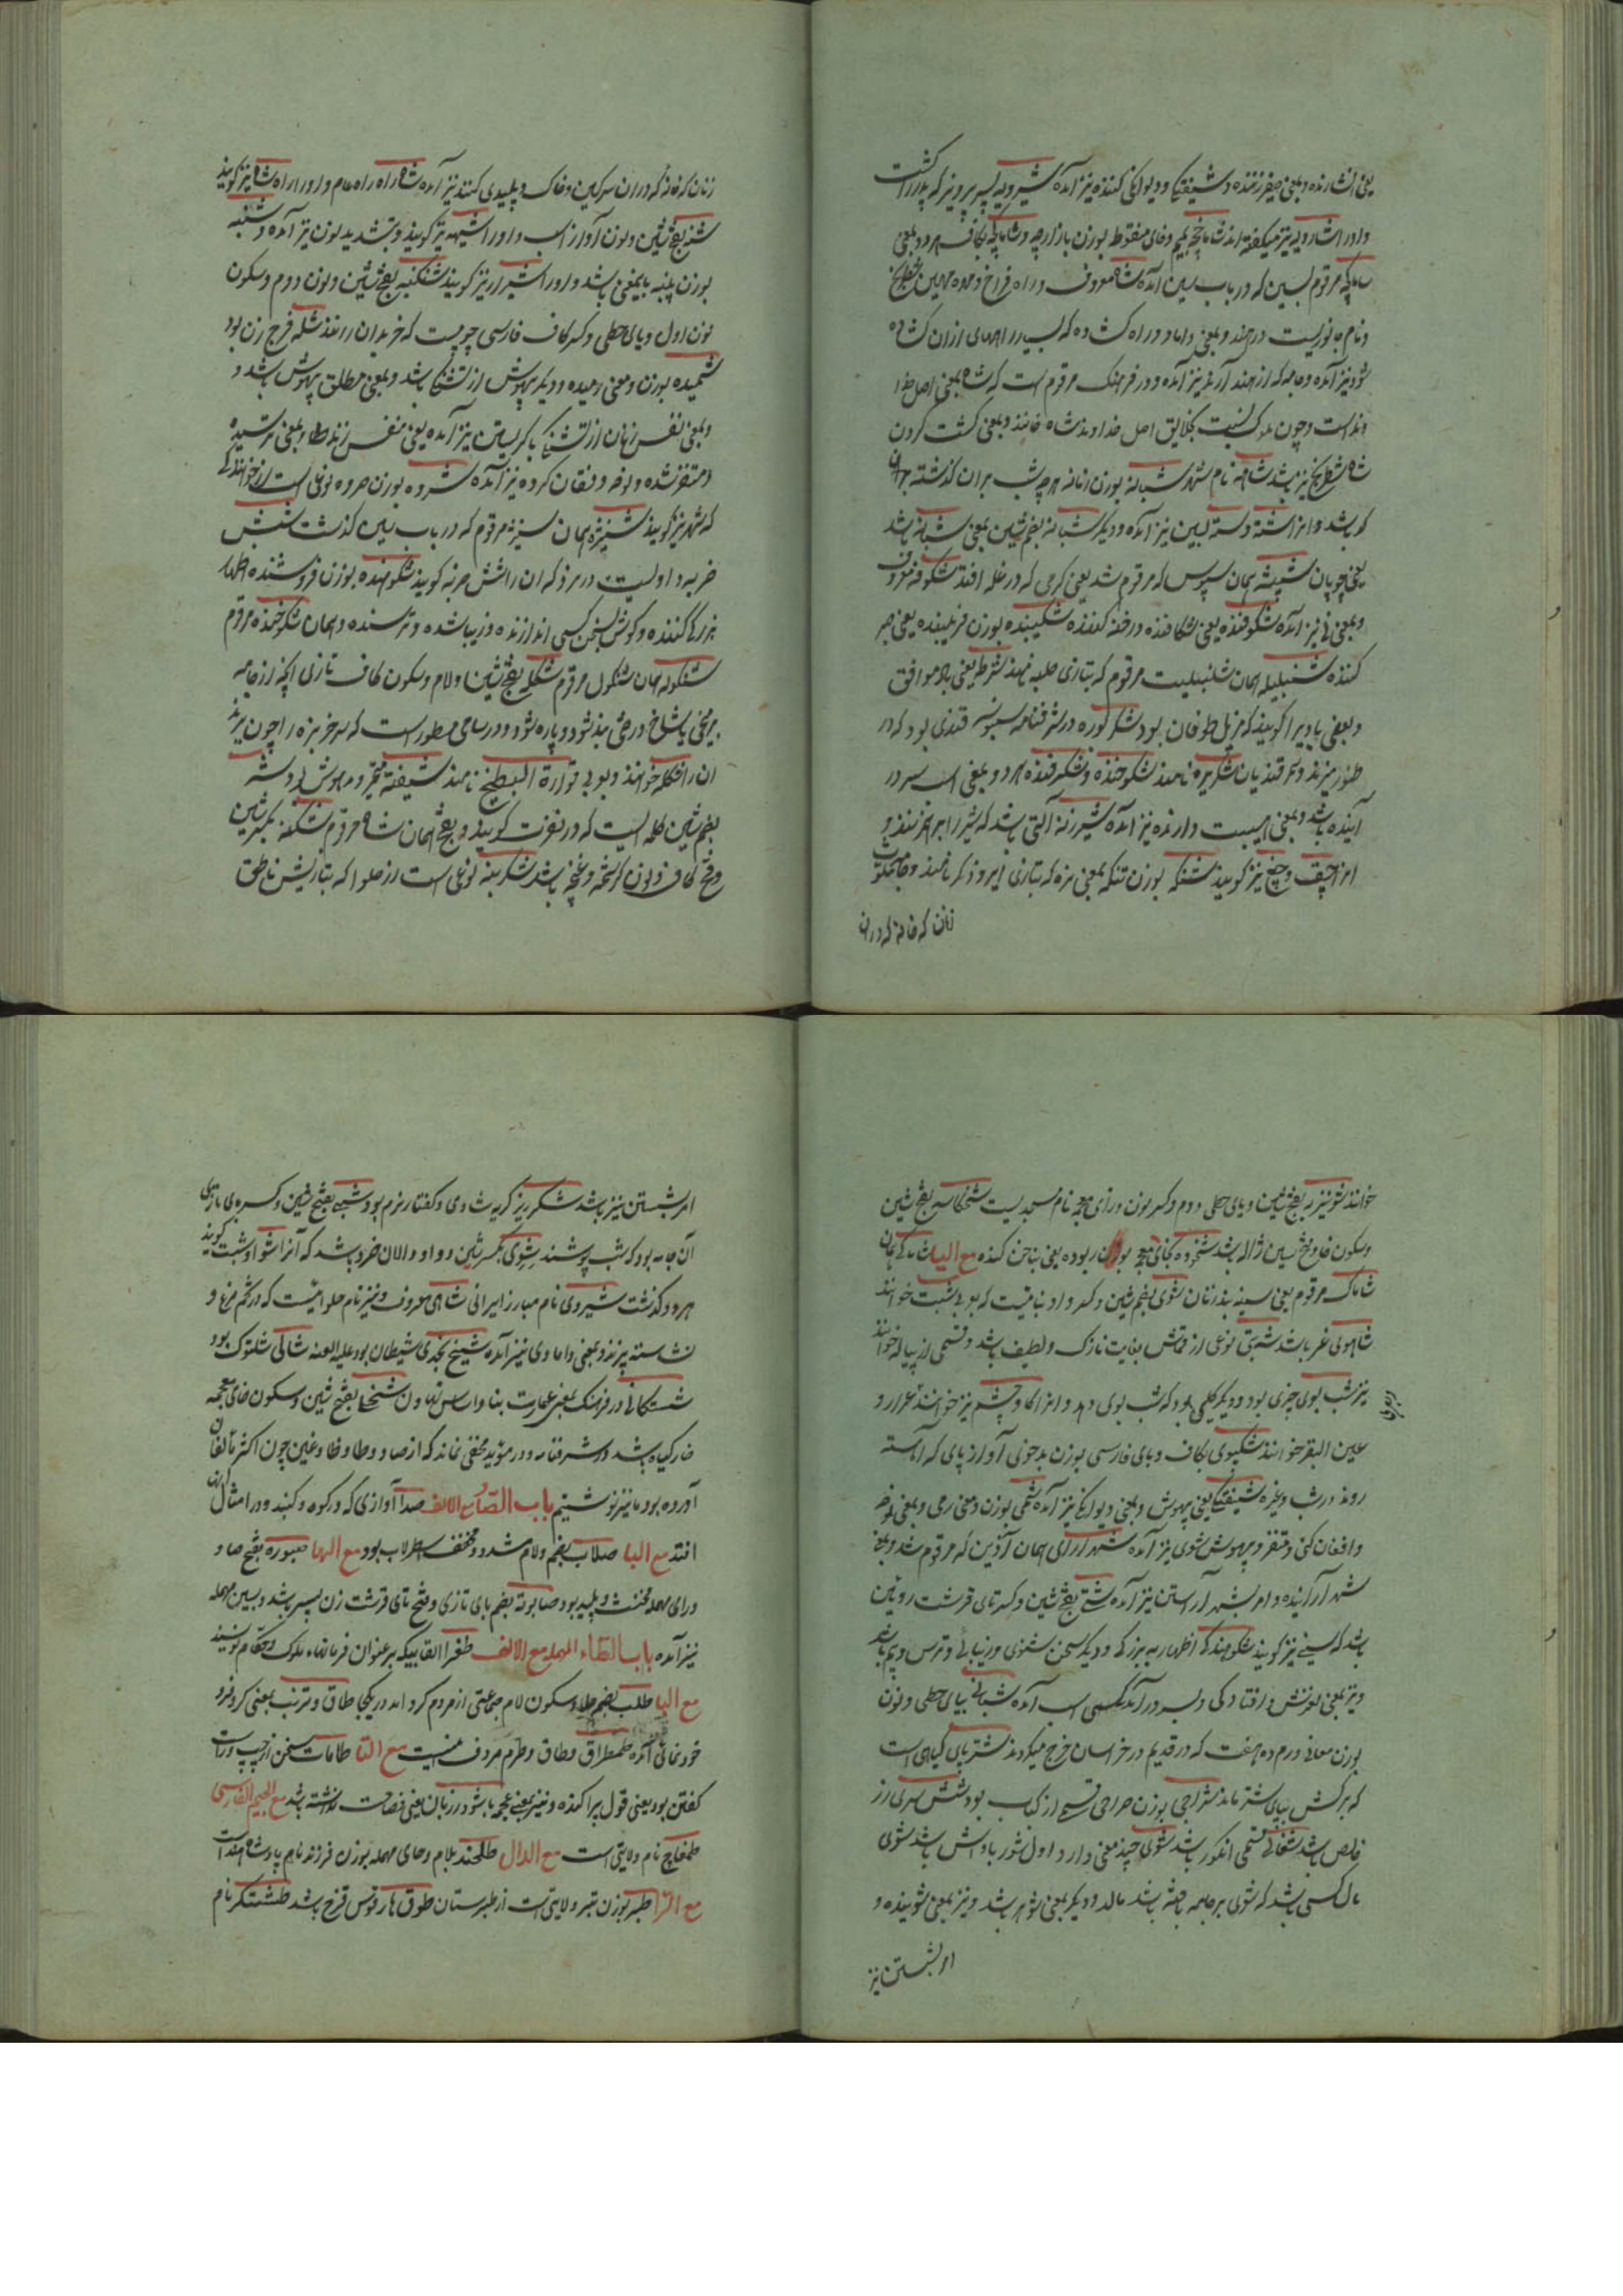 یعنی افشارنده و بمعنی صفیر زننده و شیفتگی و دیوانگی کننده نیز آمده شیرویه پسر پرویز که پدر را کشت
و او را شارویه نیز میگفته اند شاماخچه بمیم و خای منقوط بوزن بازارچه و شاماکچه بکاف هر دو بمعنی
ساماکچه مرقوم بسین که در باب سین آمده شاه معروف و راه فراخ و مهره مهین شطرنج
و نام جانوریست در هند و بمعنی داماد و راه کشاده که بسیار راههای از ان کشاده
شود نیز آمده و جامه که از هند آرند نیز آمده و در فرهنگ مرقوم است که شاه بمعنی اصل و خدا
وند است و چون ملوک نسبت بخلایق اصل خداوند شاه خوانند و بمعنی کشت کردن
شاه شطرنج نیز باشد شامه نام شهر شبانه بوزن زنانه هر چه شب بران گذشته
که باشد و انرا شته و سته بسین نیز آمده و دیگر شبانه بضم شین بمعنی شبانه باشد
یعنی چوپان شپشه همان سپوس که مرقوم شد یعنی کرمی که در غله افتد شکوفه معروف
و بمعنی قی نیز آمده شکوفنده یعنی شکافنده و رخنه کننده شکیبنده بوزن فریبنده یعنی صبر
کننده شنبلیله همان شنبلیت مرقوم که بتازی حلبه نامند شرطه یعنی باد موافق
و بعضی بادیرا گویند که مزیل طوفان بود شکوره در شرفنامه قندی بود که در
ظروف ریزند و سمرقندیان شکربره نامند شکوخنده و شکرفنده هر دو بمعنی اسب سر در
آینده باشد و بمعنی هیبت دارنده نیز آمده شیرزنه آلتی باشد که شیر را بر هم زنند و
انرا چپق و چغ نیز گویند شنکه بوزن تنکه بمعنی نره که بتازی ایر و ذکر نامند و جامه
زنان که خانه که دران
زنان که خانه که دران سرکین و خاک و پلیدی کنند نیز آمده شاه راه راه عام و او را راه شاه نیز گویند
شنه بفتح شین و نون آواز اسب و او را شیهه نیز گویند و بتشدید نون نیز آمده و شنبه
بوزن پنبه باینمعنی باشد و او را شیرار نیز گویند شنگنبه بفتح شین و نون دوم و سکون
نون اول و یای حطی و کسر کاف فارسی چوبیست که خر بدان رانند شکه فرج زن بود
شمیده بوزن و معنی رمیده و دیگر بیهوش از تشنگی باشد و بمعنی مطلق بیهوش باشد و
و بمعنی نفس زنان از تشنگی یا گریستن نیز آمده یعنی نفس زند و بمعنی ترسیده
و متنفر شده و نوحه و فغان کرده نیز آمده شروه بوزن مروه نوعی است از خوانندگی
که شهری نیز گویند شنیزه همان سنیزه مرقوم که در باب سین گذشت شش
ضربه داویست در نرد که ان را شش ضربه گویند شکوهنده بوزن فروشنده اظهار
بزرگی کننده و گوش بسخن کسی اندازنده و زیبا شده و ترسنده و همان شکوخنده مرقوم
شنگوله همان شنگول مرقوم شکله بفتح شین و لام و سکون کاف تازی آنچه از جامه
بر میخی یا شاخ درختی بند شود و پاره شود و در سامی مسطور است که سر خربزه را چون ببرند
ان را شکله خوانند و بعربی قوارة البطیخ نامند شیفته متحیر و مدهوش شه
بضم شین کلمه ایست که در نفرت گویند و بفتح همان شاه مرقوم شکنه بکسر شین
و فتح کاف و نون کرشمه و غنچ باشد شکرینه نوعی است از حلوا که بتازیش ناطق
خوانند شونیزیه بفتح شین و یای حطی دوم و کسر نون و زای معجمه نام مسجدیست شخکاسه بفتح شین
و سکون خا و فتح سین ژاله باشد شخوده بخای معجمه بوزن ربوده یعنی بناخن کنده مع الیا شاماکی همان
شاماک مرقوم یعنی سینه بند زنان شوی بضم شین و کسر واو نباتیست که بعربی شبت خوانند
شاهولی غر باشد شربتی نوعی از قماش بغایت نازک و لطیف باشد و قسمی از پیاله خوانند
نیز شب بوی چیزی بود و دیگر گلی بود که شب بوی دهد و انرا گاو چشم نیز خوانند عرار و
عین البقر خوانند شکپوی بکاف و بای فارسی بوزن بدخوی آواز پای که آهسته
روند در شب و غیره شیفتگی یعنی بیهوش و بمعنی دیوانگی نیز آمده شمی بوزن و معنی رمی و بمعنی نوحه
و افغان کنی و متنفر و بیهوش شوی نیز آمده شهر آرای همان آذین که مرقوم شد و بمعنی
شهر آراینده و امر بشهر آراستن نیز آمده شتی بفتح شین و کسر تای قرشت روئین
باشد که سینی نیز گویند شکوهندگی اظهار به بزرگی و دیگر سخن شنوی و زیبائی و ترس و بیم باشد
و نیز بمعنی لغزش و افتادگی و بسر در آمدن اسب آمده شیانی بیای حطی و نون
بوزن معانی درم ده هفت که در قدیم در خراسان خرج میکردند شترپای گیاهی است
که برکش بپای شتر ماند شراجی بوزن حراجی قسمی از کباب بود شش سری زر
خالص باشد شغالی قسمی انگور باشد شوی چند معنی دارد اول شوربا و آش باشد شوی
مال کسی باشد که شوی بر جامه باخته باشد مالد و دیگر بمعنی شوهر باشد و نیز بمعنی شوینده و
امر بشستن نیز
امر بشستن نیز باشد شکرریز گریه شادی و گفتار نرم بود شبی بفتح شین و کسر بای تازی
آن جامه بود که شب پوشند شوی بکسر شین و واو دالان خرد باشد که آنرا شوا و شبت گویند
هر دو گذشت شیروی نام مبارز ایرانی شاهی معروف و نیز نام حلوائیست که از تخم مرغ و
نشاسته پزند و بمعنی دامادی نیز آمده شیخ نجدی شیطان بود علیه اللعنه شالی شلتوک بود
شستکانی در فرهنگ بمعنی عمارت بنا و اساس نهادن شخا بفتح شین و سکون خای معجمه
خار گیاه باشد در شرفنامه و در مؤید مخفی نماند که از صاد و طا و ظا و غین چون اکثر مؤلفان
آورده بودند ما نیز نوشتیم باب الصاد مع الالف صدا آوازی که در کوه و گنبد و در امثال آن
افتد مع البا صلاب بضم و لام مشدد مخفف اسطرلاب بود مع الها صبوره بفتح صاد و
و رای مهمله مخنث و پلید بود صابوته بضم بای تازی و فتح تای قرشت زن پیر باشد و بسین مهمله
نیز آمده باب الطاء المهمله مع الالف طغرا القابیکه بر عنوان فرمانهاء ملوک و حکام نویسند
مع البا طلب بضم طا و سکون لام جماعتی از مردم گرد آمده در یکجا طاق و ترنب بمعنی کر و فر و
خودنمائی آمده طمطراق و طاق و طرم مردف اینست مع التا طامات سخن از چپ و راست
گفتن بود یعنی قول پراکنده و نیز بمعنی عجمه باشد در زبان یعنی فصاحت نداشته باشد مع الجیم الفارسی
طمغاچ نام ولایتی است مع الدال طلحند بلام و حای مهمله بوزن فرزند نام پادشاه هند است
مع الرا طبر بوزن تبر ولایتی است از طبرستان طوق بهار قوس قزح باشد طشتگر نام